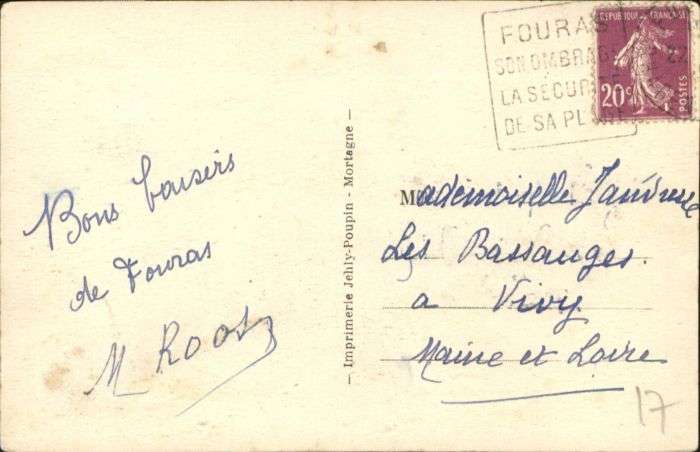 Bons baisers
de Fouras
M ROOS
— Imprimerie Jehly-Poupin - Mortagne —
FOURAS
SON OMBRAGE
LA SÉCURITÉ
DE SA PLAGE
REPUBLIQUE FRANÇAISE
20c
POSTES
Mademoiselle
Les Bassauges.
a Vivy
Maine et Loire
17